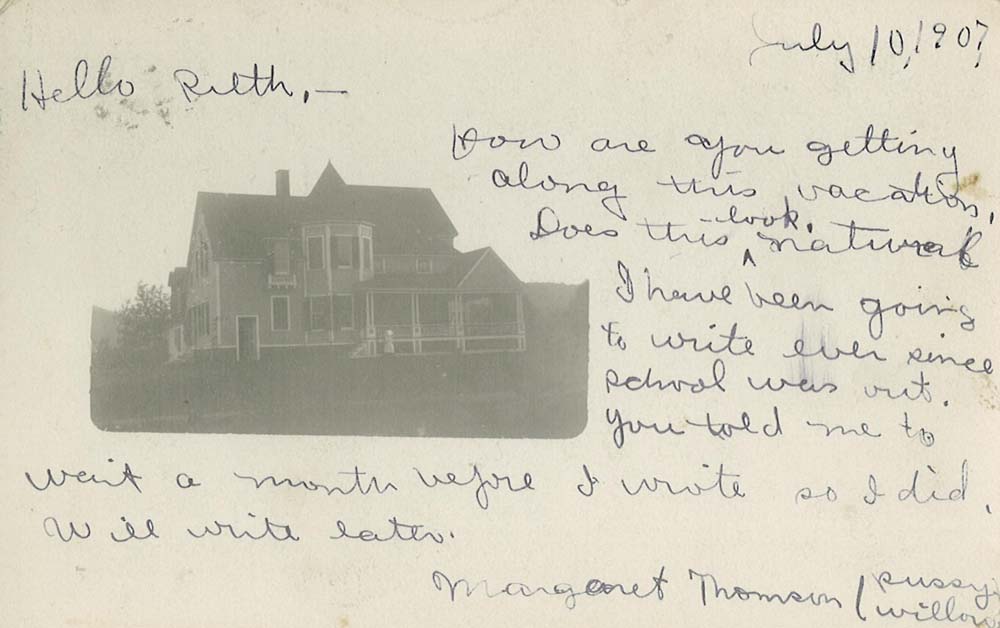 July 10, 1907
Hello Ruth, —
How are you getting
along this vacation.
Does this look natural
I have been going
to write ever since
school was out.
You told me to
wait a month before I wrote so I did.
Will write later.
Margaret Thomson (pussy
willow